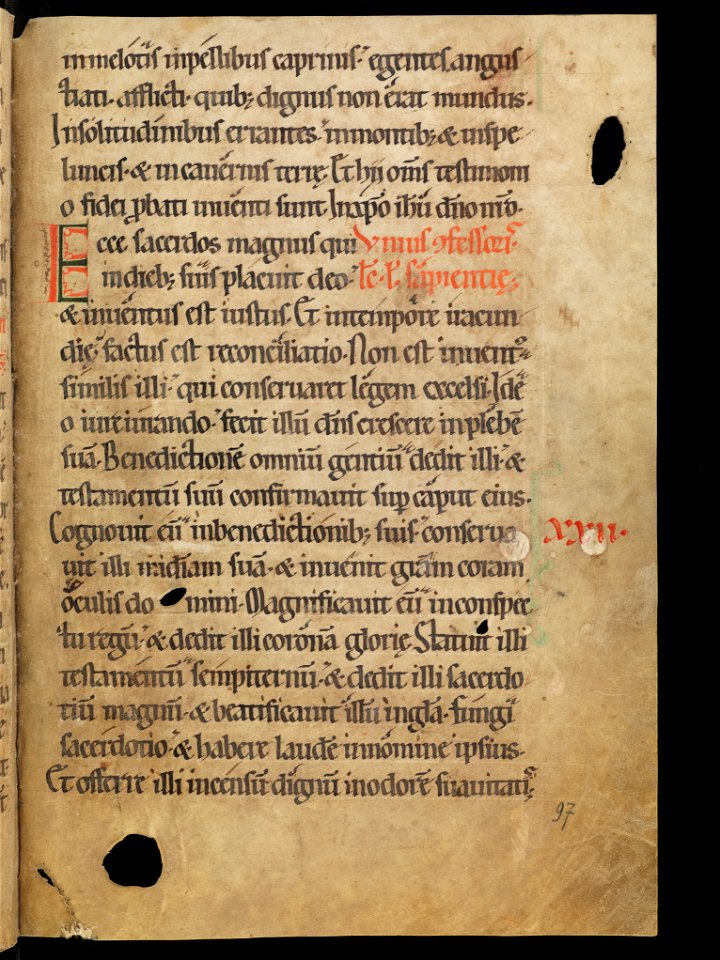 in melotis inpellibus caprinis. egentes. angus
tiati. afflicti. quib; dignus non erat mundus.
Insolitudinibus errantes. inmontib; & inspe
luncis. & in cauernis terrę. Et hij om̄s testimoni
o fidei ꝓbati inuenti sunt. Inxp̄o ih̄u dn̄o nr̄o.
Ecce sacerdos magnus qui Vnius ꝯfessoris.
in dieb; suis placuit deo. Lc̄. l. sapientię.
& inuentus est iustus. Et intempore iracun
dię. factus est reconciliatio. Non est inuent᷒
similis illi. qui conseruaret legem excelsi. Idē
o iureiurando. fecit illū dn̄s crescere inplebē
suā. Benedictionē omniū gentiū dedit illi. &
testamentū suū confirmauit suꝑ caput eius.
Cognouit eū inbenedictionib; suis. conserua XXII.
uit illi mīdiam suā. & inuenit grām coram
oculis do mini. Magnificauit eū in conspec
tu regū. & dedit illi coronā glorię. Statuit illi
testamentū sempiternū. & dedit illi sacerdo
tiū magnū. & beatificauit illū ingl̄a. fungi
sacerdotio. & habere laudē innomine ipsius.
Et offerre illi incensū dignū inodorē suauitatis.
97